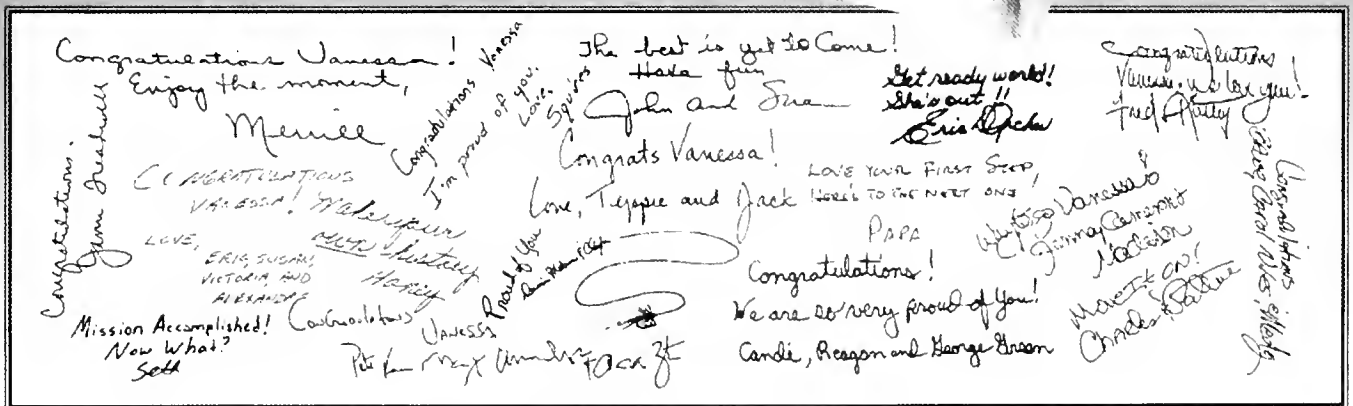 Congratulations Vanessa!
Enjoy the moment,
Merrill
Congratulations Vanessa
I'm proud of you.
Love,
Squires
The best is yet to Come!
Have fun
John and Sue
Get ready world!
She's out!!
Congratulations
Vanessa, we love you!
Fred
Congratulations.
CONGRATULATIONS
VANESSA!
LOVE,
ERIC, SUSAN,
VICTORIA, AND
ALEXANDRA
Make your
own history
Congrats Vanessa!
Love, Teppie and Jack
LOVE YOUR FIRST STEP,
HERE'S TO THE NEXT ONE
PAPA
Way to go Vanessa
Madison
Congratulations
Mission Accomplished!
Now What?
Seth
Congratulations
VANESSA
Proud of You
Congratulations!
We are so very proud of you!
Candie, Reagon and George Green
Move It ON!
Charles &